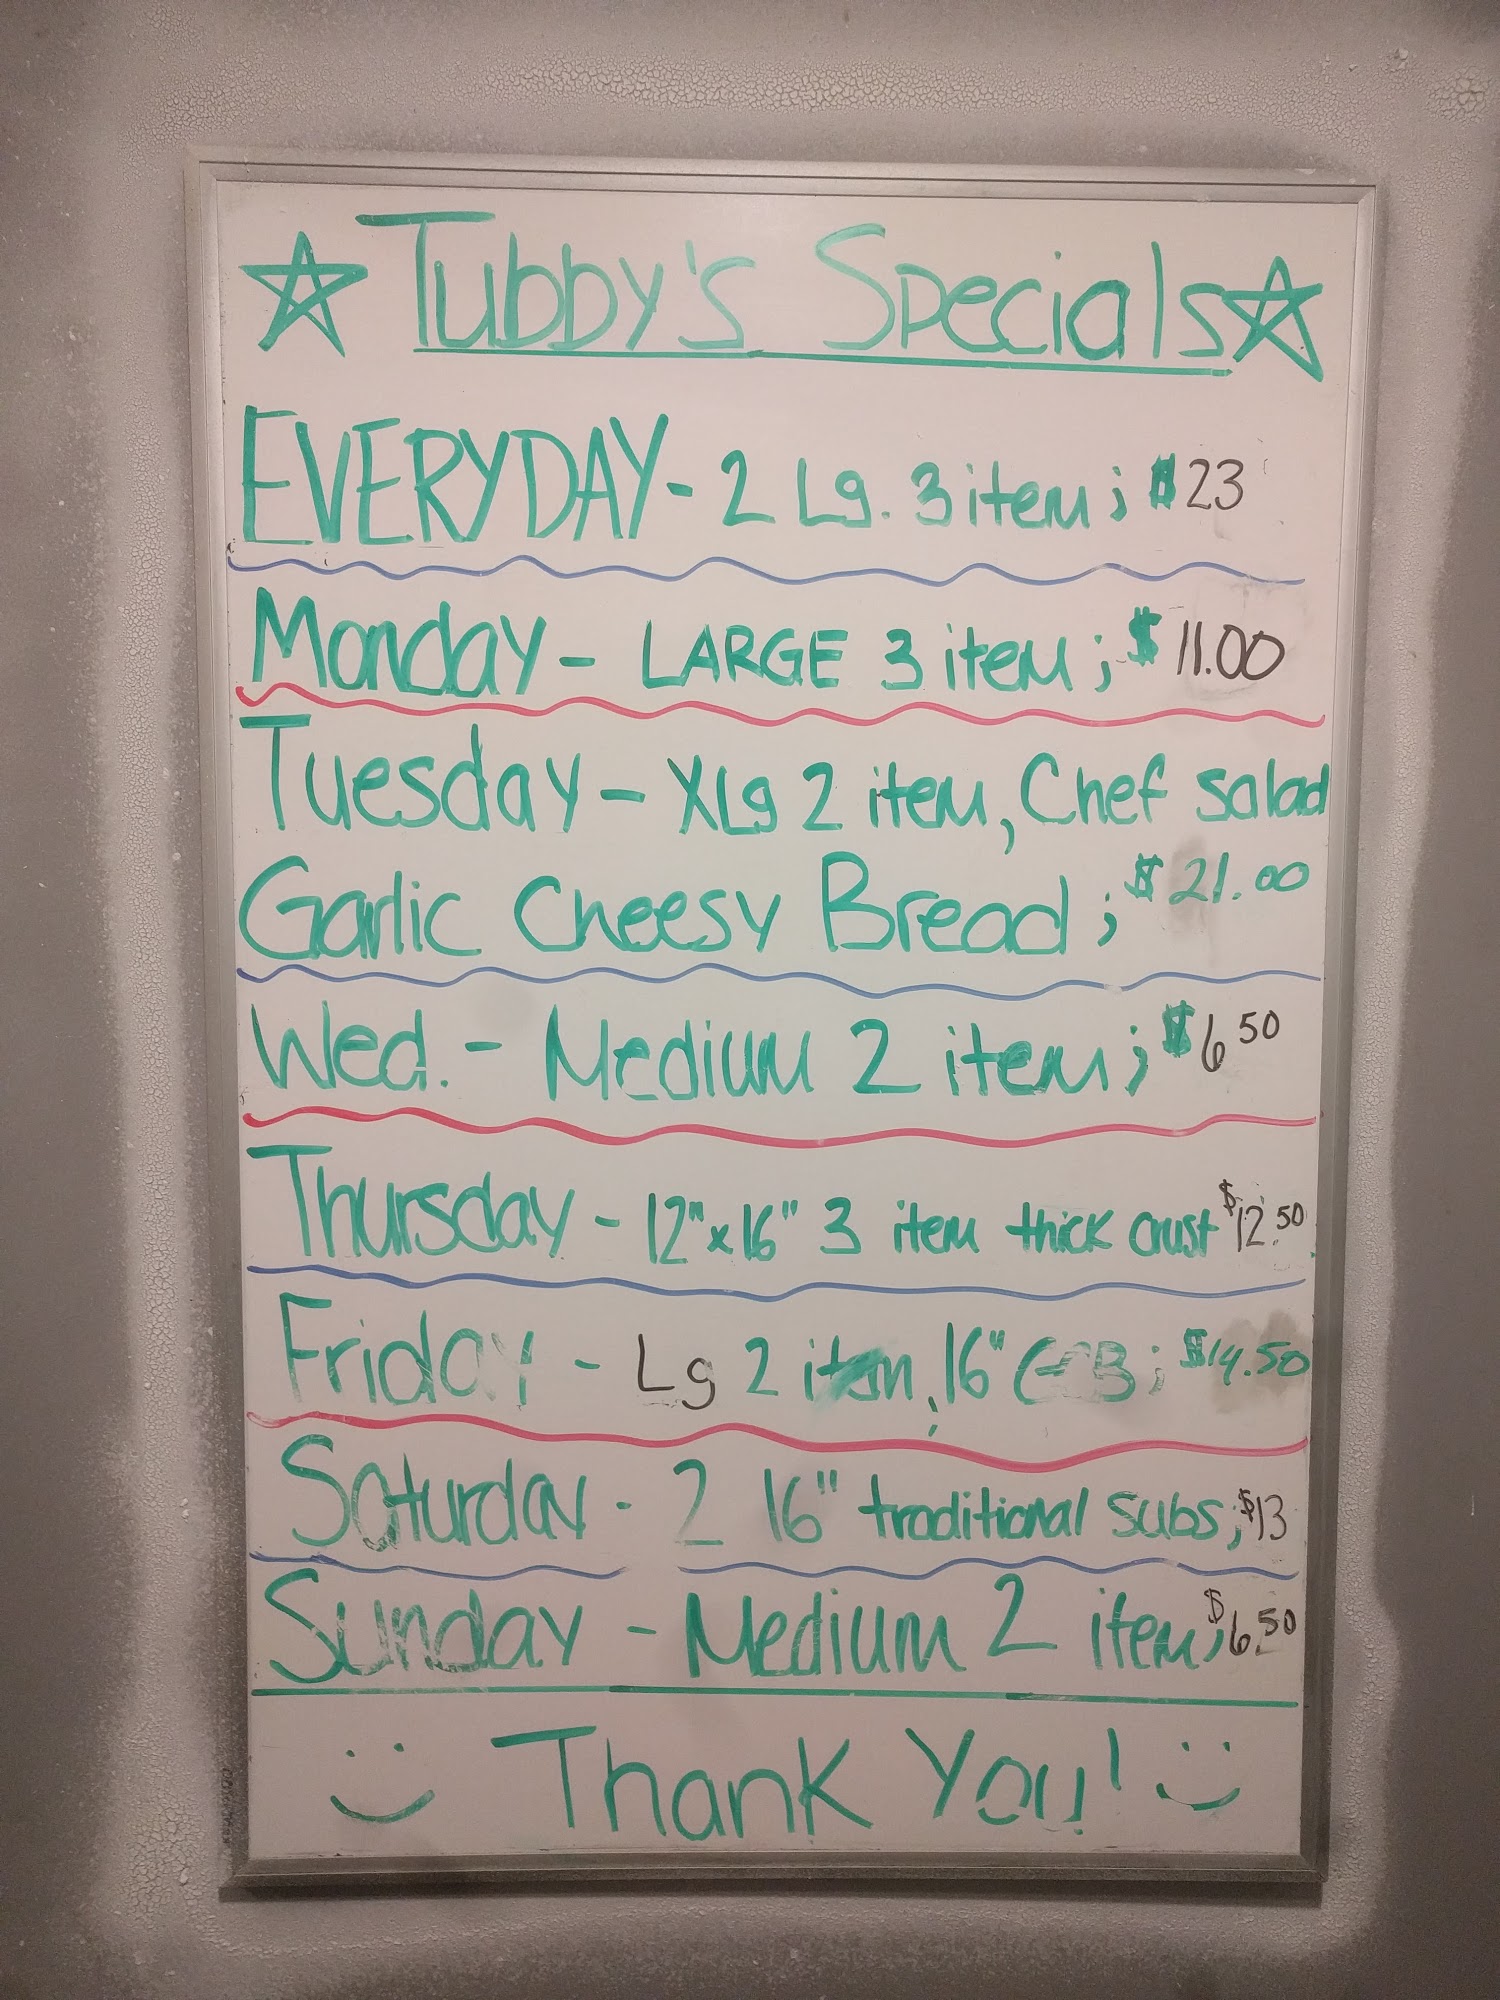 ☆ Tubby's Specials ☆
EVERYDAY - 2 Lg. 3 item; $23
Monday - LARGE 3 item; $11.00
Tuesday - XLg 2 item, Chef salad
Garlic Cheesy Bread; $21.00
Wed. - Medium 2 item; $6 50
Thursday - 12"x16" 3 item thick crust $12.50
Friday - Lg 2 item, 16" GCB; $14.50
Saturday - 2 16" traditional subs; $13
Sunday - Medium 2 item; $6.50
Thank You!